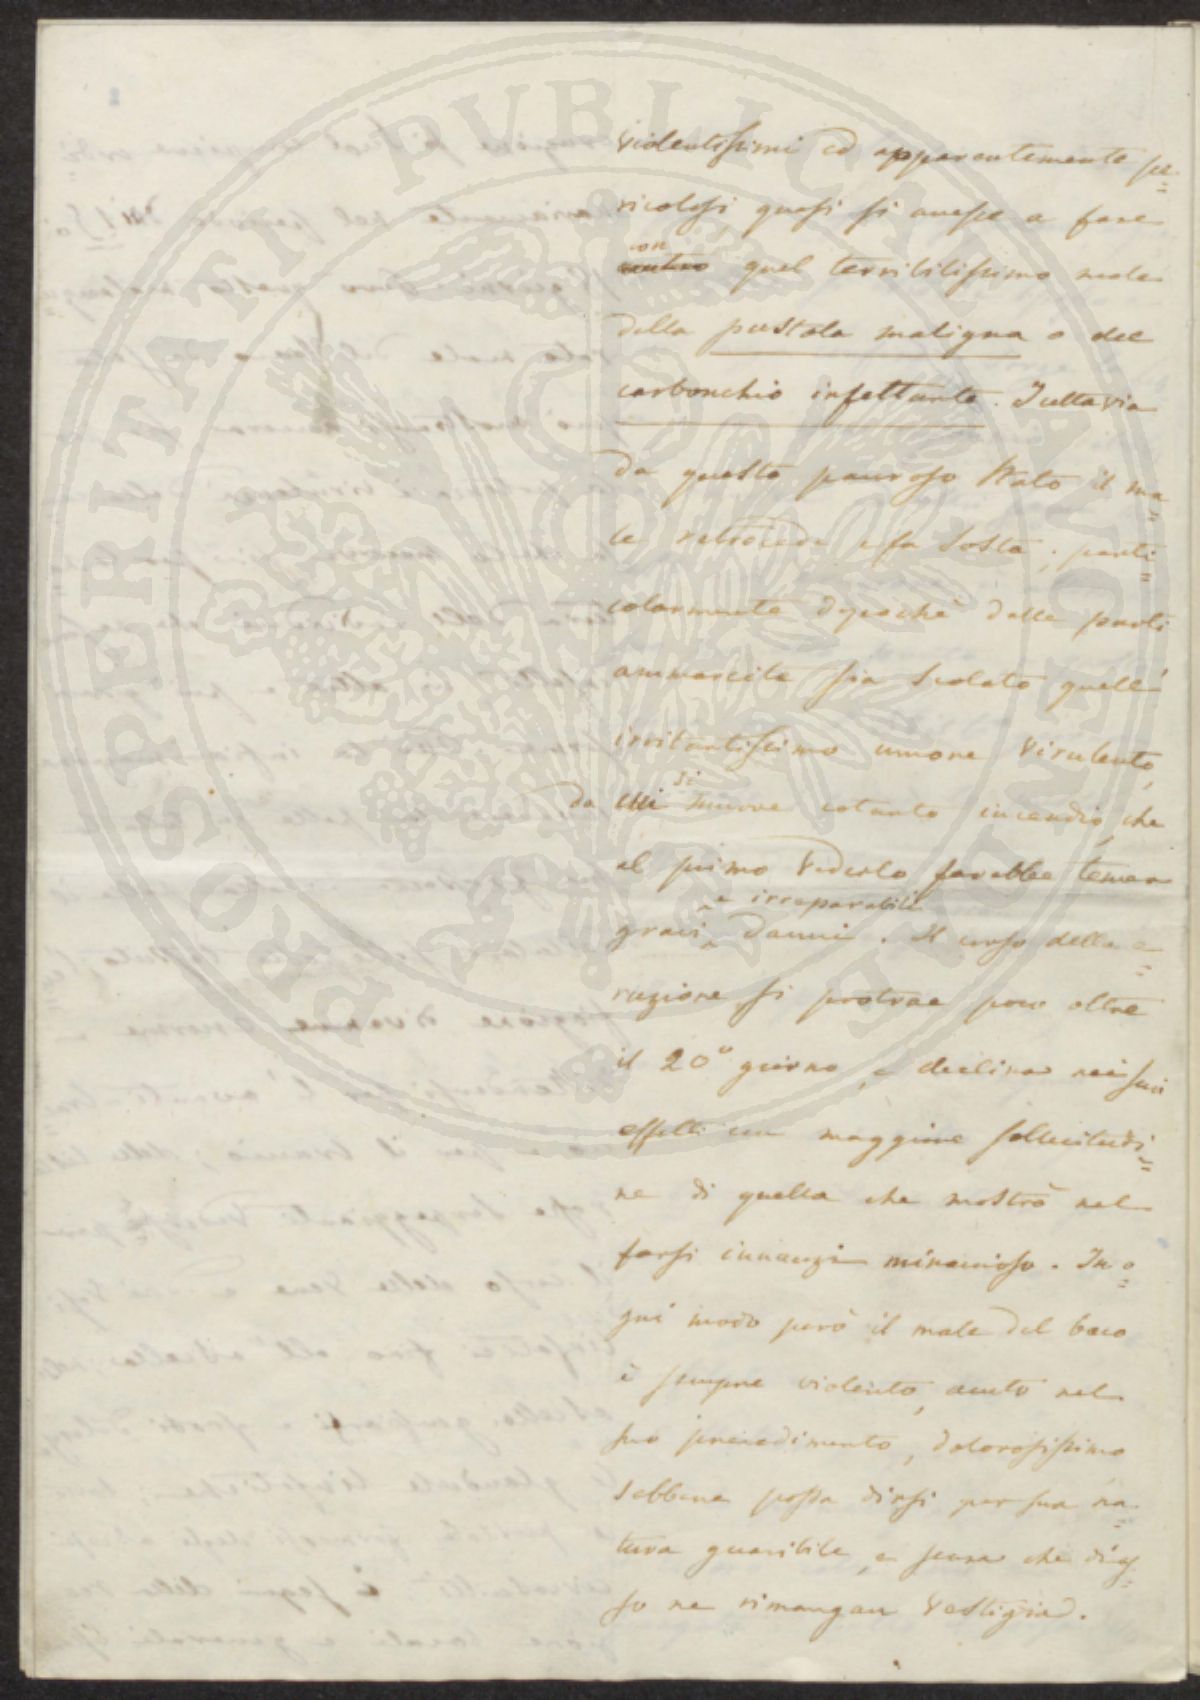 violentissimi ed apparentemente pe=
ricolosi, quasi si avesse a fare
con
quel terribilissimo male
della pustola maligna o del
carbonchio infettante. Tuttavia
da questo pauroso stato il ma=
le retrocede e fa sosta; parti=
colarmente dopochè dalle parti
ammarcite sia scolato quell'
irritantissimo umore virulento,
da cui si muove cotanto incendio, che
al primo vederlo farebbe temere
gravi e irreparabili danni. Il corso della e=
ruzione si protrae poco oltre
il 20° giorno, e declina nei suoi
effetti con maggiore sollecitudi=
ne di quella che mostrò nel
farsi innanzi minaccioso. In o=
gni modo però il male del baco
è sempre violento, acuto nel
suo procedimento, dolorosissimo
sebbene possa dirsi per sua na=
tura guaribile, e senza che
so ne rimangan vestigia.
PROSPERITATI PUBLICAE AUGENDAE